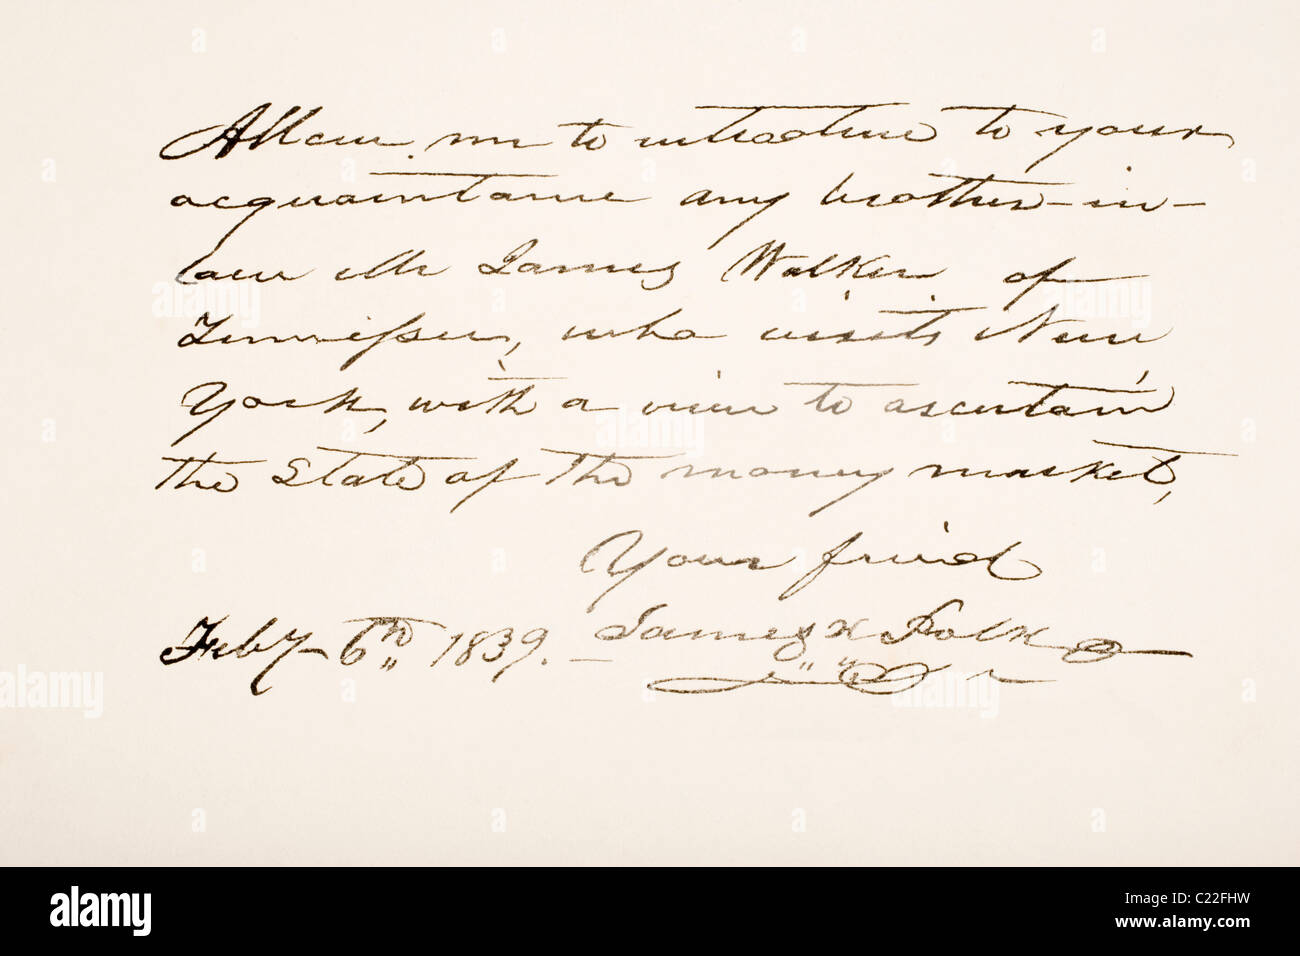 Allow me to introduce to your
acquaintance my brother-in-
law Mr James Walker of
Tennessee, who visits New
York, with a view to ascertain
the State of the money market,
Your friend
Feby 6th 1839. James K Polk
alamy
Image ID: C22FHW
www.alamy.com